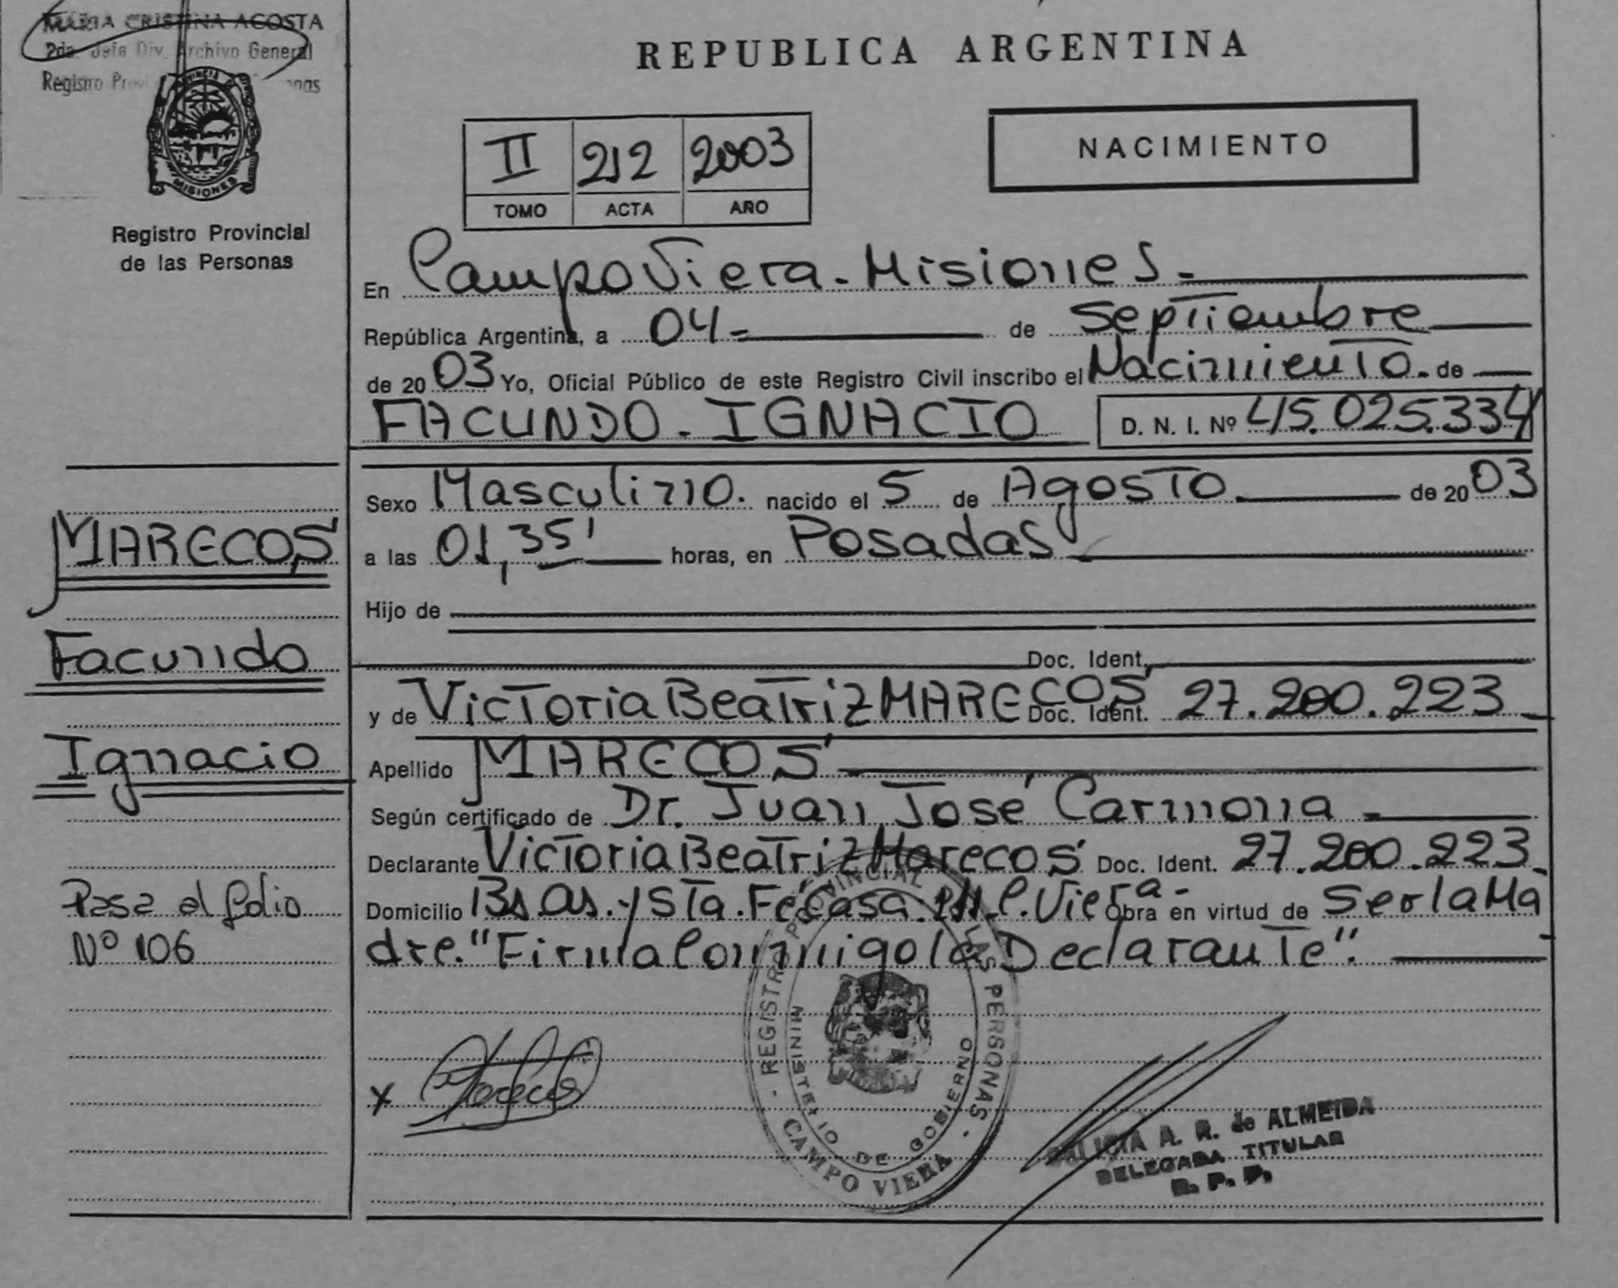 MARIA CRISTINA ACOSTA
2da. Jefa Div. Archivo General
Registro
MISIONES
Registro Provincial
de las Personas
REPUBLICA ARGENTINA
II 212 2003
TOMO ACTA AÑO
NACIMIENTO
En Campo Viera - Misiones.=
República Argentina, a 04= de septiembre
de 2003 Yo, Oficial Público de este Registro Civil inscribo el Nacimiento. de
FACUNDO - IGNACIO D. N. I. Nº 45.025.334
Sexo Masculino. nacido el 5 de Agosto de 2003
a las 01,35' horas, en Posadas
Hijo de
Doc. Ident.
y de Victoria Beatriz MARECOS Doc. Ident. 27.200.223
Apellido MARECOS
Según certificado de Dr. Juan José Carmona
Declarante Victoria Beatriz Marecos Doc. Ident. 27.200.223
Domicilio Bs As. y Sta. Fé Casa C. Viera- Obra en virtud de Ser la Ma
dre. "Firma Conmigo la Declarante".
MARECOS
Facundo
Ignacio
Pasa al folio
Nº 106
x Marecos
REGISTRO PROVINCIAL LAS PERSONAS
MINISTERIO DE GOBIERNO
- CAMPO VIERA -
ALICIA A. R. de ALMEIDA
DELEGADA TITULAR
R. P. P.